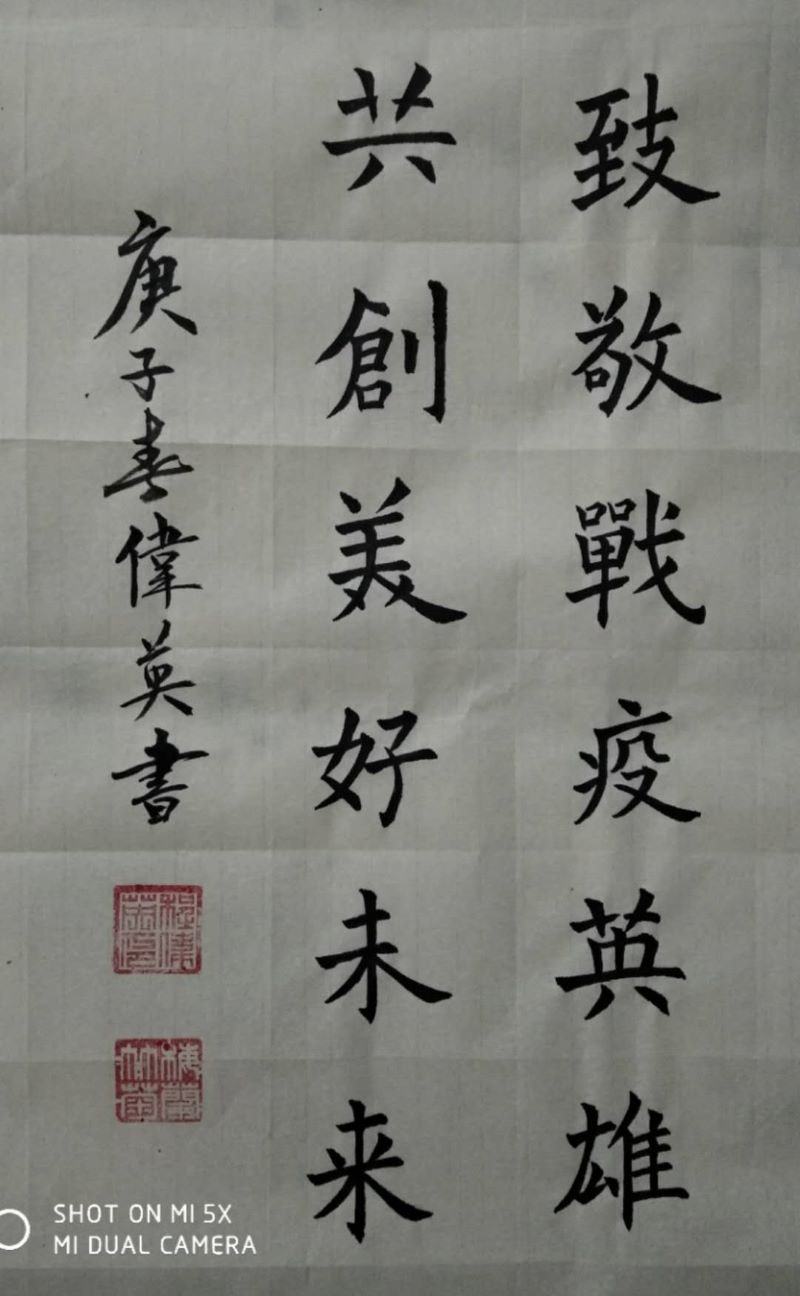 致敬戰疫英雄
共創美好未来
庚子春偉英書
梅蘭竹菊
SHOT ON MI 5X
MI DUAL CAMERA